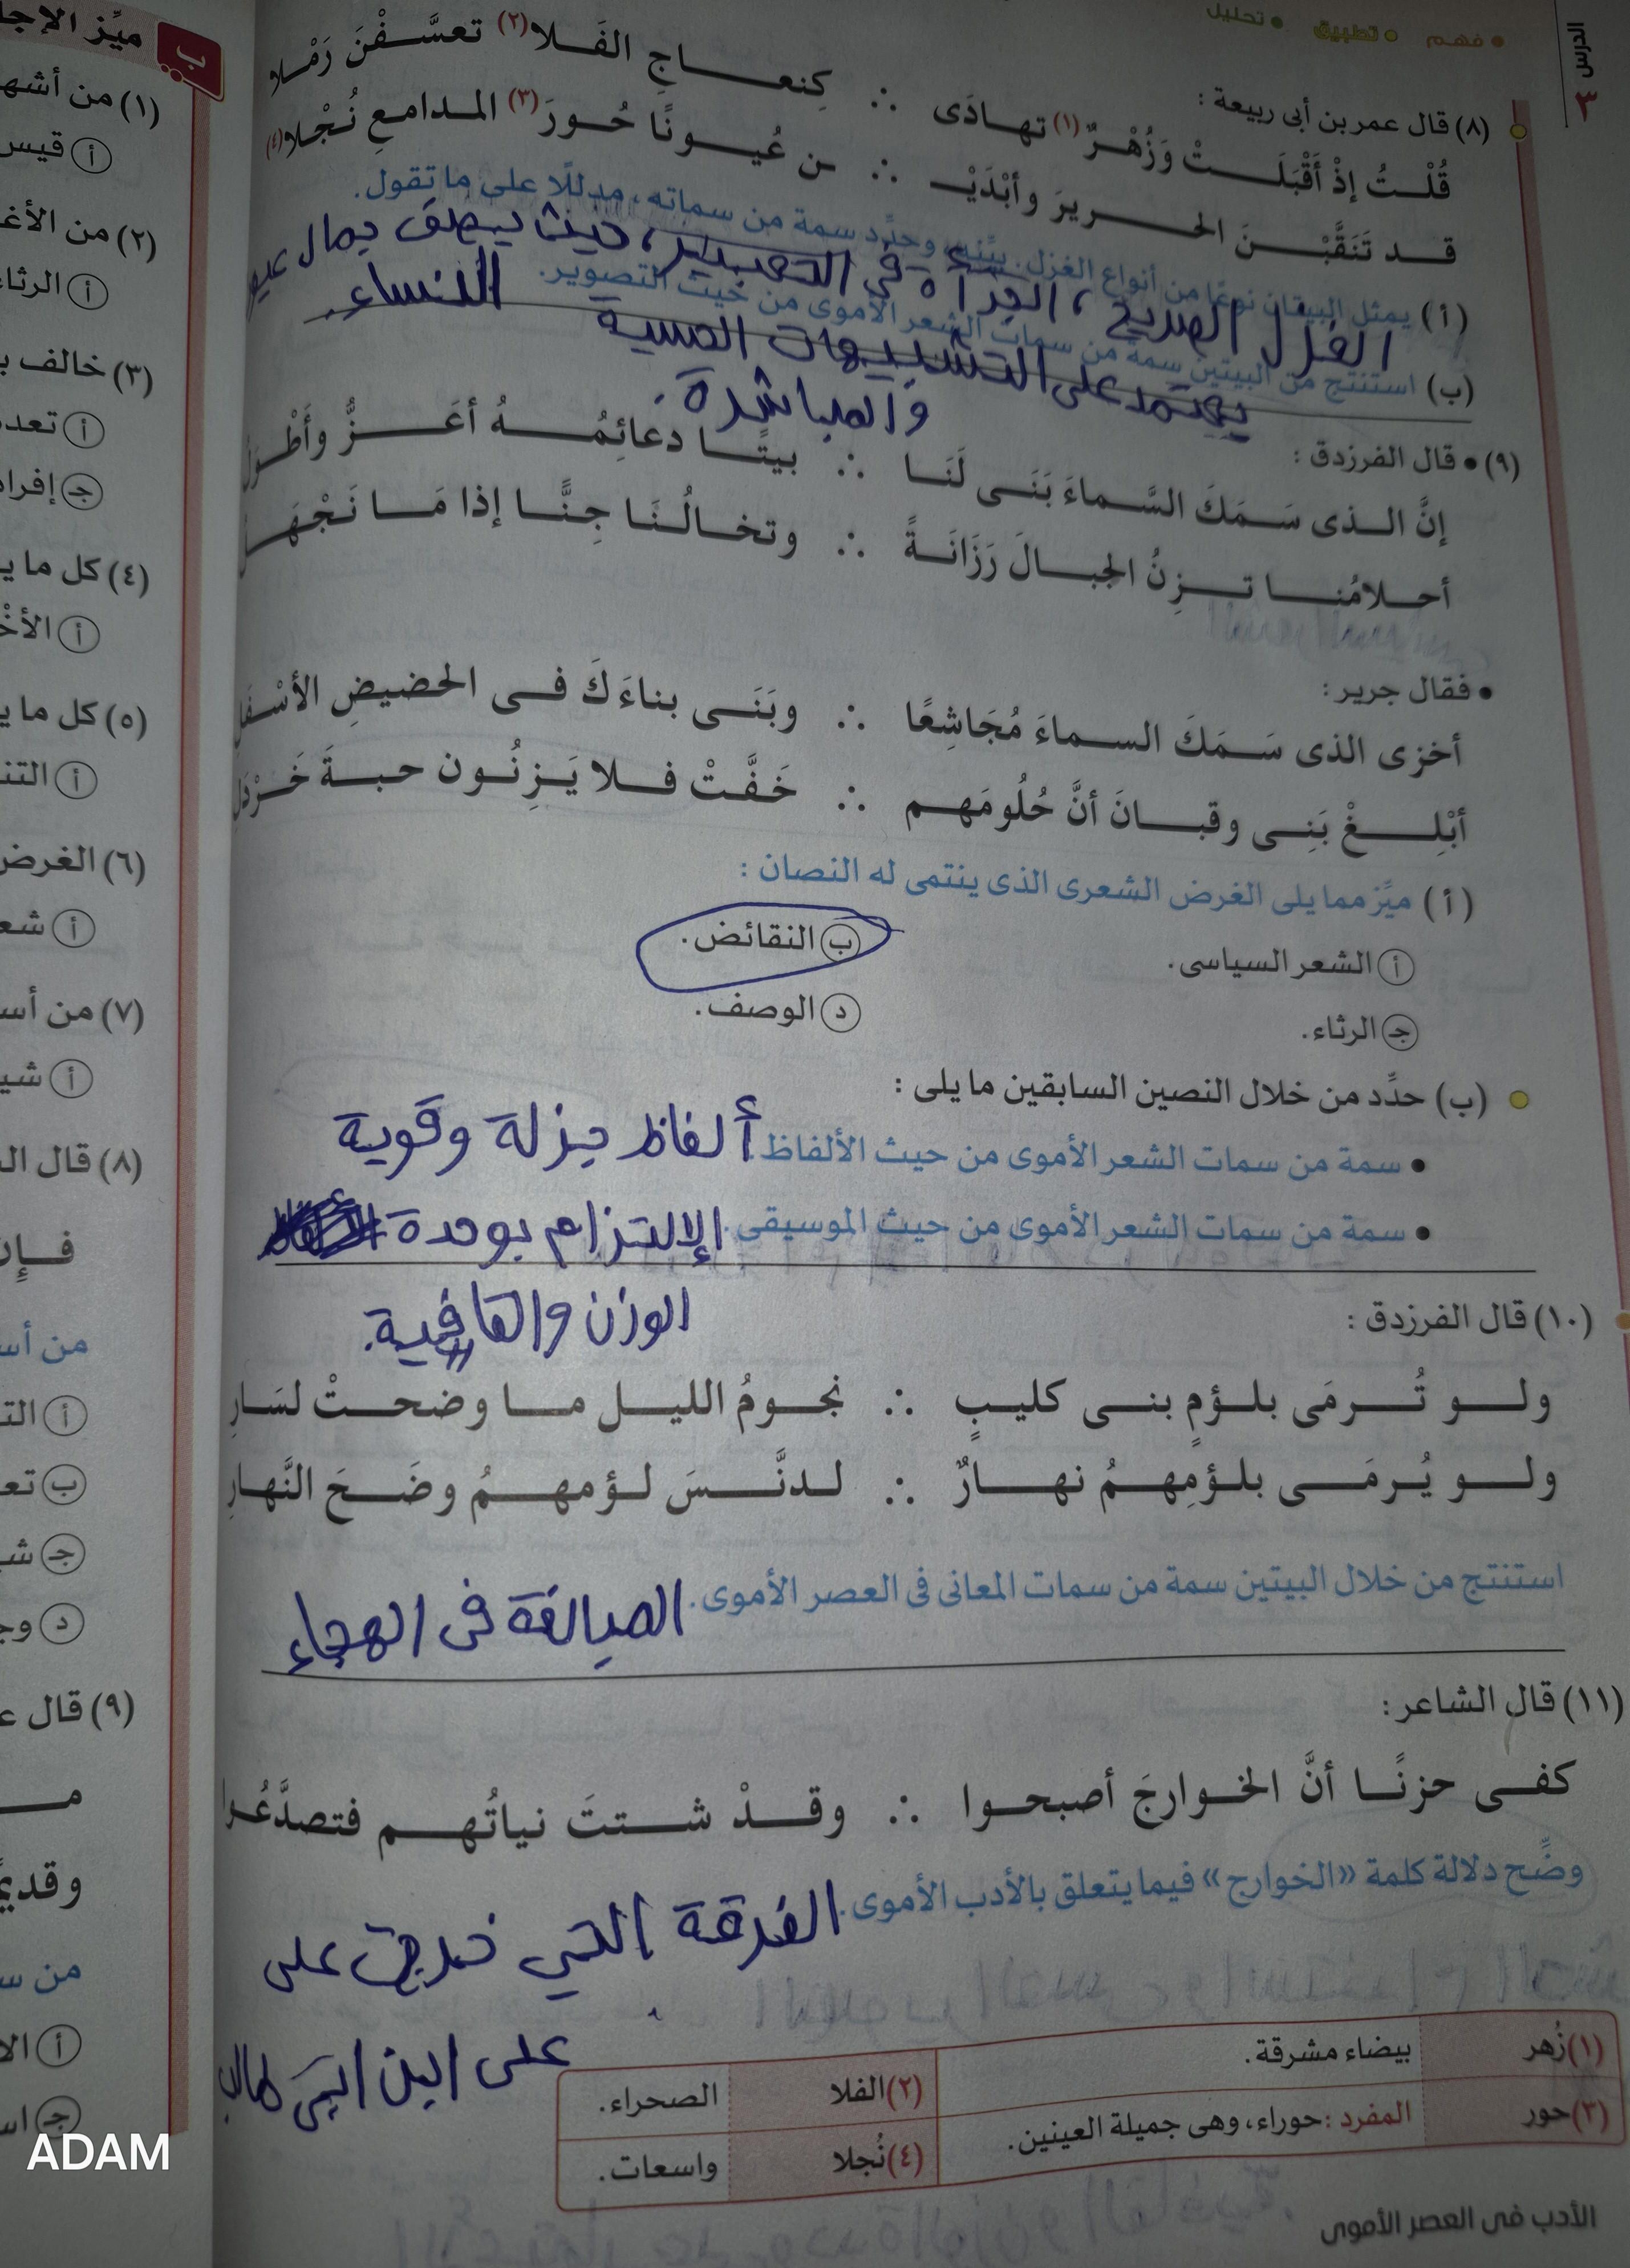 الدرس ٣
• فهم • تطبيق • تحليل
(٨) قال عمر بن أبى ربيعة :
قُلْتُ إذْ أَقْبَلَتْ وَزُهْرٌ(١) تهادَى ∴ كِنعاجِ الفَلا(٢) تعسَّفْنَ رَمْلا
قد تَنَقَّبْنَ الحريرَ وأَبْدَيْـ ∴ ـن عُيونًا حُورَ(٣) المدامعِ نُجْلا(٤)
(أ) يمثل البيتان نوعًا من أنواع الغزل. بيِّنه، وحدِّد سمة من سماته، مدللًا على ما تقول.
الغزل الصريح، الجرأة في التعبير، حيث يصف جمال
النساء
(ب) استنتج من البيتين سمة من سمات الشعر الأموى من حيث التصوير.
يعتمد على التشبيهات الحسية
والمباشرة.
(٩) • قال الفرزدق :
إنَّ الذى سَمَكَ السَّماءَ بَنَى لَنَا ∴ بيتًا دعائِمُهُ أعَزُّ وأَطْوَلُ
أحلامُنا تزِنُ الجبالَ رَزَانَةً ∴ وتخالُنَا جِنًّا إذا مَا نَجْهَلُ
• فقال جرير :
أخزى الذى سَمَكَ السماءَ مُجَاشِعًا ∴ وبَنَى بناءَكَ فى الحضيضِ الأَسْفَلِ
أبْلِغْ بَنِى وقبانَ أنَّ حُلُومَهم ∴ خَفَّتْ فلا يَزِنُون حبةَ خَرْدَلِ
(أ) ميِّز مما يلى الغرض الشعرى الذى ينتمى له النصان :
أ الشعر السياسى.
ب النقائض.
ج الرثاء.
د الوصف.
(ب) حدِّد من خلال النصين السابقين ما يلى :
• سمة من سمات الشعر الأموى من حيث الألفاظ. ألفاظ جزلة وقوية
• سمة من سمات الشعر الأموى من حيث الموسيقى. الإلتزام بوحدة
الوزن والقافية.
(١٠) قال الفرزدق :
ولو تُرمَى بلؤمِ بنى كليبٍ ∴ نجومُ الليل ما وضحتْ لسَارِ
ولو يُرمَى بلؤمِهمُ نهارٌ ∴ لدنَّسَ لؤمهمُ وضَحَ النَّهارِ
استنتج من خلال البيتين سمة من سمات المعانى فى العصر الأموى. المبالغة فى الهجاء
(١١) قال الشاعر :
كفى حزنًا أنَّ الخوارجَ أصبحوا ∴ وقدْ شتتَ نياتُهم فتصدَّعُوا
وضِّح دلالة كلمة «الخوارج» فيما يتعلق بالأدب الأموى. الفرقة التي خرجت على
على ابن ابي طالب
(١) زُهر
بيضاء مشرقة.
(٢) الفلا
الصحراء.
(٣) حور
المفرد : حوراء، وهى جميلة العينين.
(٤) نُجلا
واسعات.
الأدب فى العصر الأموى
ب
ميِّز الإجا
(١) من أشهـ
أ قيس
(٢) من الأغـ
أ الرثاء
(٣) خالف
أ تعدد
ج إفراد
(٤) كل ما يـ
أ الأخ
(٥) كل ما يـ
أ التنـ
(٦) الغرض
أ شعـ
(٧) من أسـ
أ شيـ
(٨) قال الـ
فإن
من أسـ
أ التـ
ب تعـ
ج شـ
د وجـ
(٩) قال عـ
مـ
من سـ
أ الا
ج اسـ
ADAM